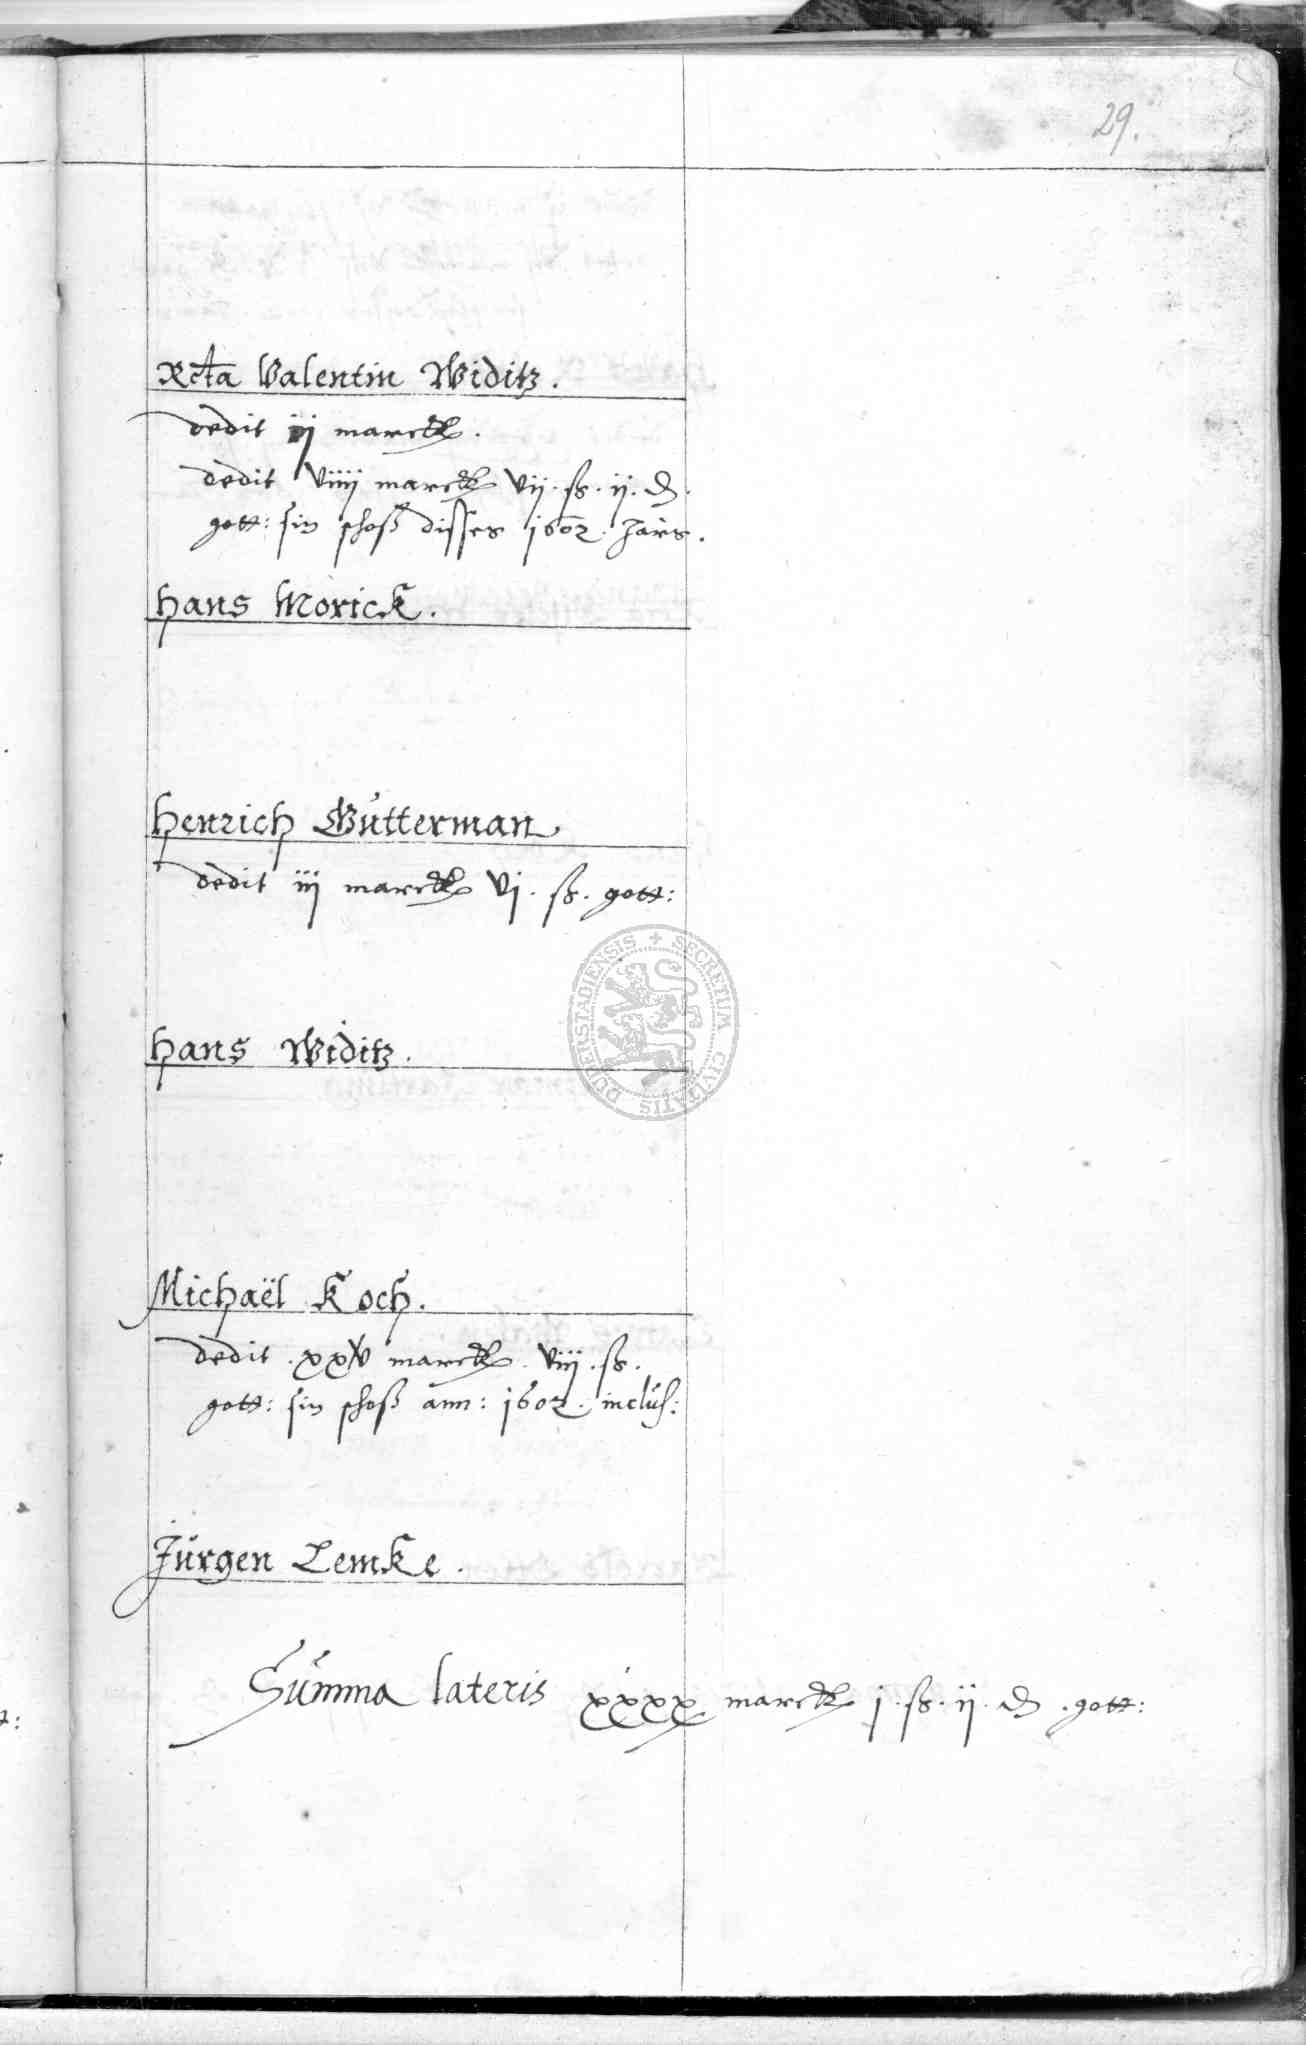 29.
Rcta Valentin Widitz.
dedit iij marck.
dedit viiij marck vij. ß. ij. d.
gott: sin schoß disses 1602. Jars.
Hans Morick.
Henrich Gutterman.
dedit iij marck vj. ß. gott:
Hans Widitz.
SECRETUM CIVITATIS DUDERSTADIENSIS
Michaël Koch.
dedit. xxv marck. viij. ß.
gott: sin schoß ann: 1602. inclus:
Jürgen Lemke.
Summa lateris xxxx marck j. ß. ij. d. gott: